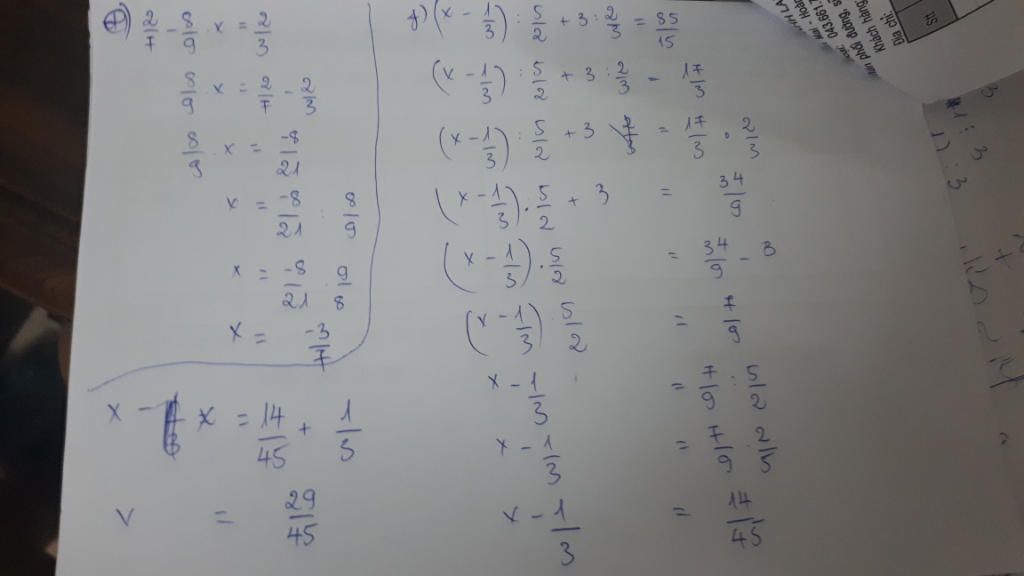 +) 2/7 - 8/9 . x = 2/3
8/9 . x = 2/7 - 2/3
8/9 . x = -8/21
x = -8/21 : 8/9
x = -8/21 . 9/8
x = -3/7
f) (x - 1/3) : 5/2 + 3 : 2/3 = 85/15
(x - 1/3) : 5/2 + 3 : 2/3 = 17/3
(x - 1/3) : 5/2 + 3 2/3 = 17/3 . 2/3
(x - 1/3) . 5/2 + 3 = 34/9
(x - 1/3) . 5/2 = 34/9 - 3
(x - 1/3) . 5/2 = 7/9
x - 1/3 = 7/9 : 5/2
x - 1/3 = 7/9 . 2/5
x - 1/3 = 14/45
x - x = 14/45 + 1/3
x = 29/45
Địa chỉ:
Khách hàng
Stt